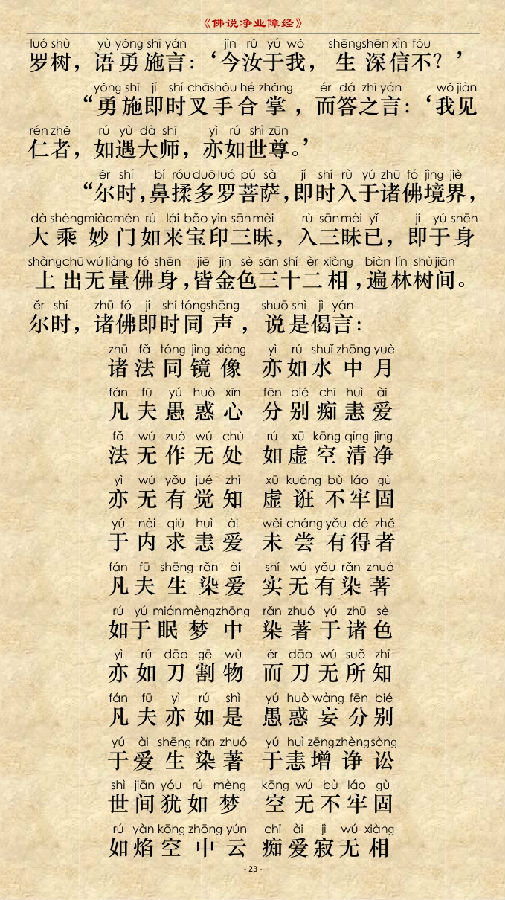 《佛说净业障经》
luó shù yù yǒng shī yán jīn rǔ yú wǒ shēngshēn xìn fǒu
罗树，语勇施言：‘今汝于我，生 深信不？’
yǒng shī jí shí chāshǒu hé zhǎng ér dá zhī yán wǒ jiàn
“勇施即时叉手合 掌 ，而答之言：‘我见
rén zhě rú yù dà shī yì rú shì zūn
仁者，如遇大师，亦如世尊。’
ěr shí bí róu duō luó pú sà jí shí rù yú zhū fó jìng jiè
“尔时，鼻揉多罗菩萨，即时入于诸佛境界，
dà shèngmiàomén rú lái bǎo yìn sānmèi rù sānmèi yǐ jí yú shēn
大 乘 妙 门如来宝印三昧，入三昧已，即于身
shàngchū wú liàng fó shēn jiē jīn sè sān shí èr xiàng biàn lín shù jiān
上 出无量佛身，皆金色三十二 相 ，遍林树间。
ěr shí zhū fó jí shí tóngshēng shuō shì jì yán
尔时，诸佛即时同 声 ，说是偈言：
zhū fǎ tóng jìng xiàng yì rú shuǐ zhōng yuè
诸 法 同 镜 像 亦 如 水 中 月
fán fū yú huò xīn fēn bié chī huì ài
凡 夫 愚 惑 心 分 别 痴 恚 爱
fǎ wú zuò wú chù rú xū kōng qīng jìng
法 无 作 无 处 如 虚 空 清 净
yì wú yǒu jué zhī xū kuáng bù láo gù
亦 无 有 觉 知 虚 诳 不 牢 固
yú nèi qiú huì ài wèi cháng yǒu dé zhě
于 内 求 恚 爱 未 尝 有 得 者
fán fū shēng rǎn ài shí wú yǒu rǎn zhuó
凡 夫 生 染 爱 实 无 有 染 著
rú yú miánmèngzhōng rǎn zhuó yú zhū sè
如 于 眠 梦 中 染 著 于 诸 色
yì rú dāo gē wù ér dāo wú suǒ zhī
亦 如 刀 割 物 而 刀 无 所 知
fán fū yì rú shì yú huò wàng fēn bié
凡 夫 亦 如 是 愚 惑 妄 分 别
yú ài shēng rǎn zhuó yú huì zēngzhèngsòng
于 爱 生 染 著 于 恚 增 诤 讼
shì jiān yóu rú mèng kōng wú bù láo gù
世 间 犹 如 梦 空 无 不 牢 固
rú yàn kōng zhōng yún chī ài jì wú xiàng
如 焰 空 中 云 痴 爱 寂 无 相
- 23 -